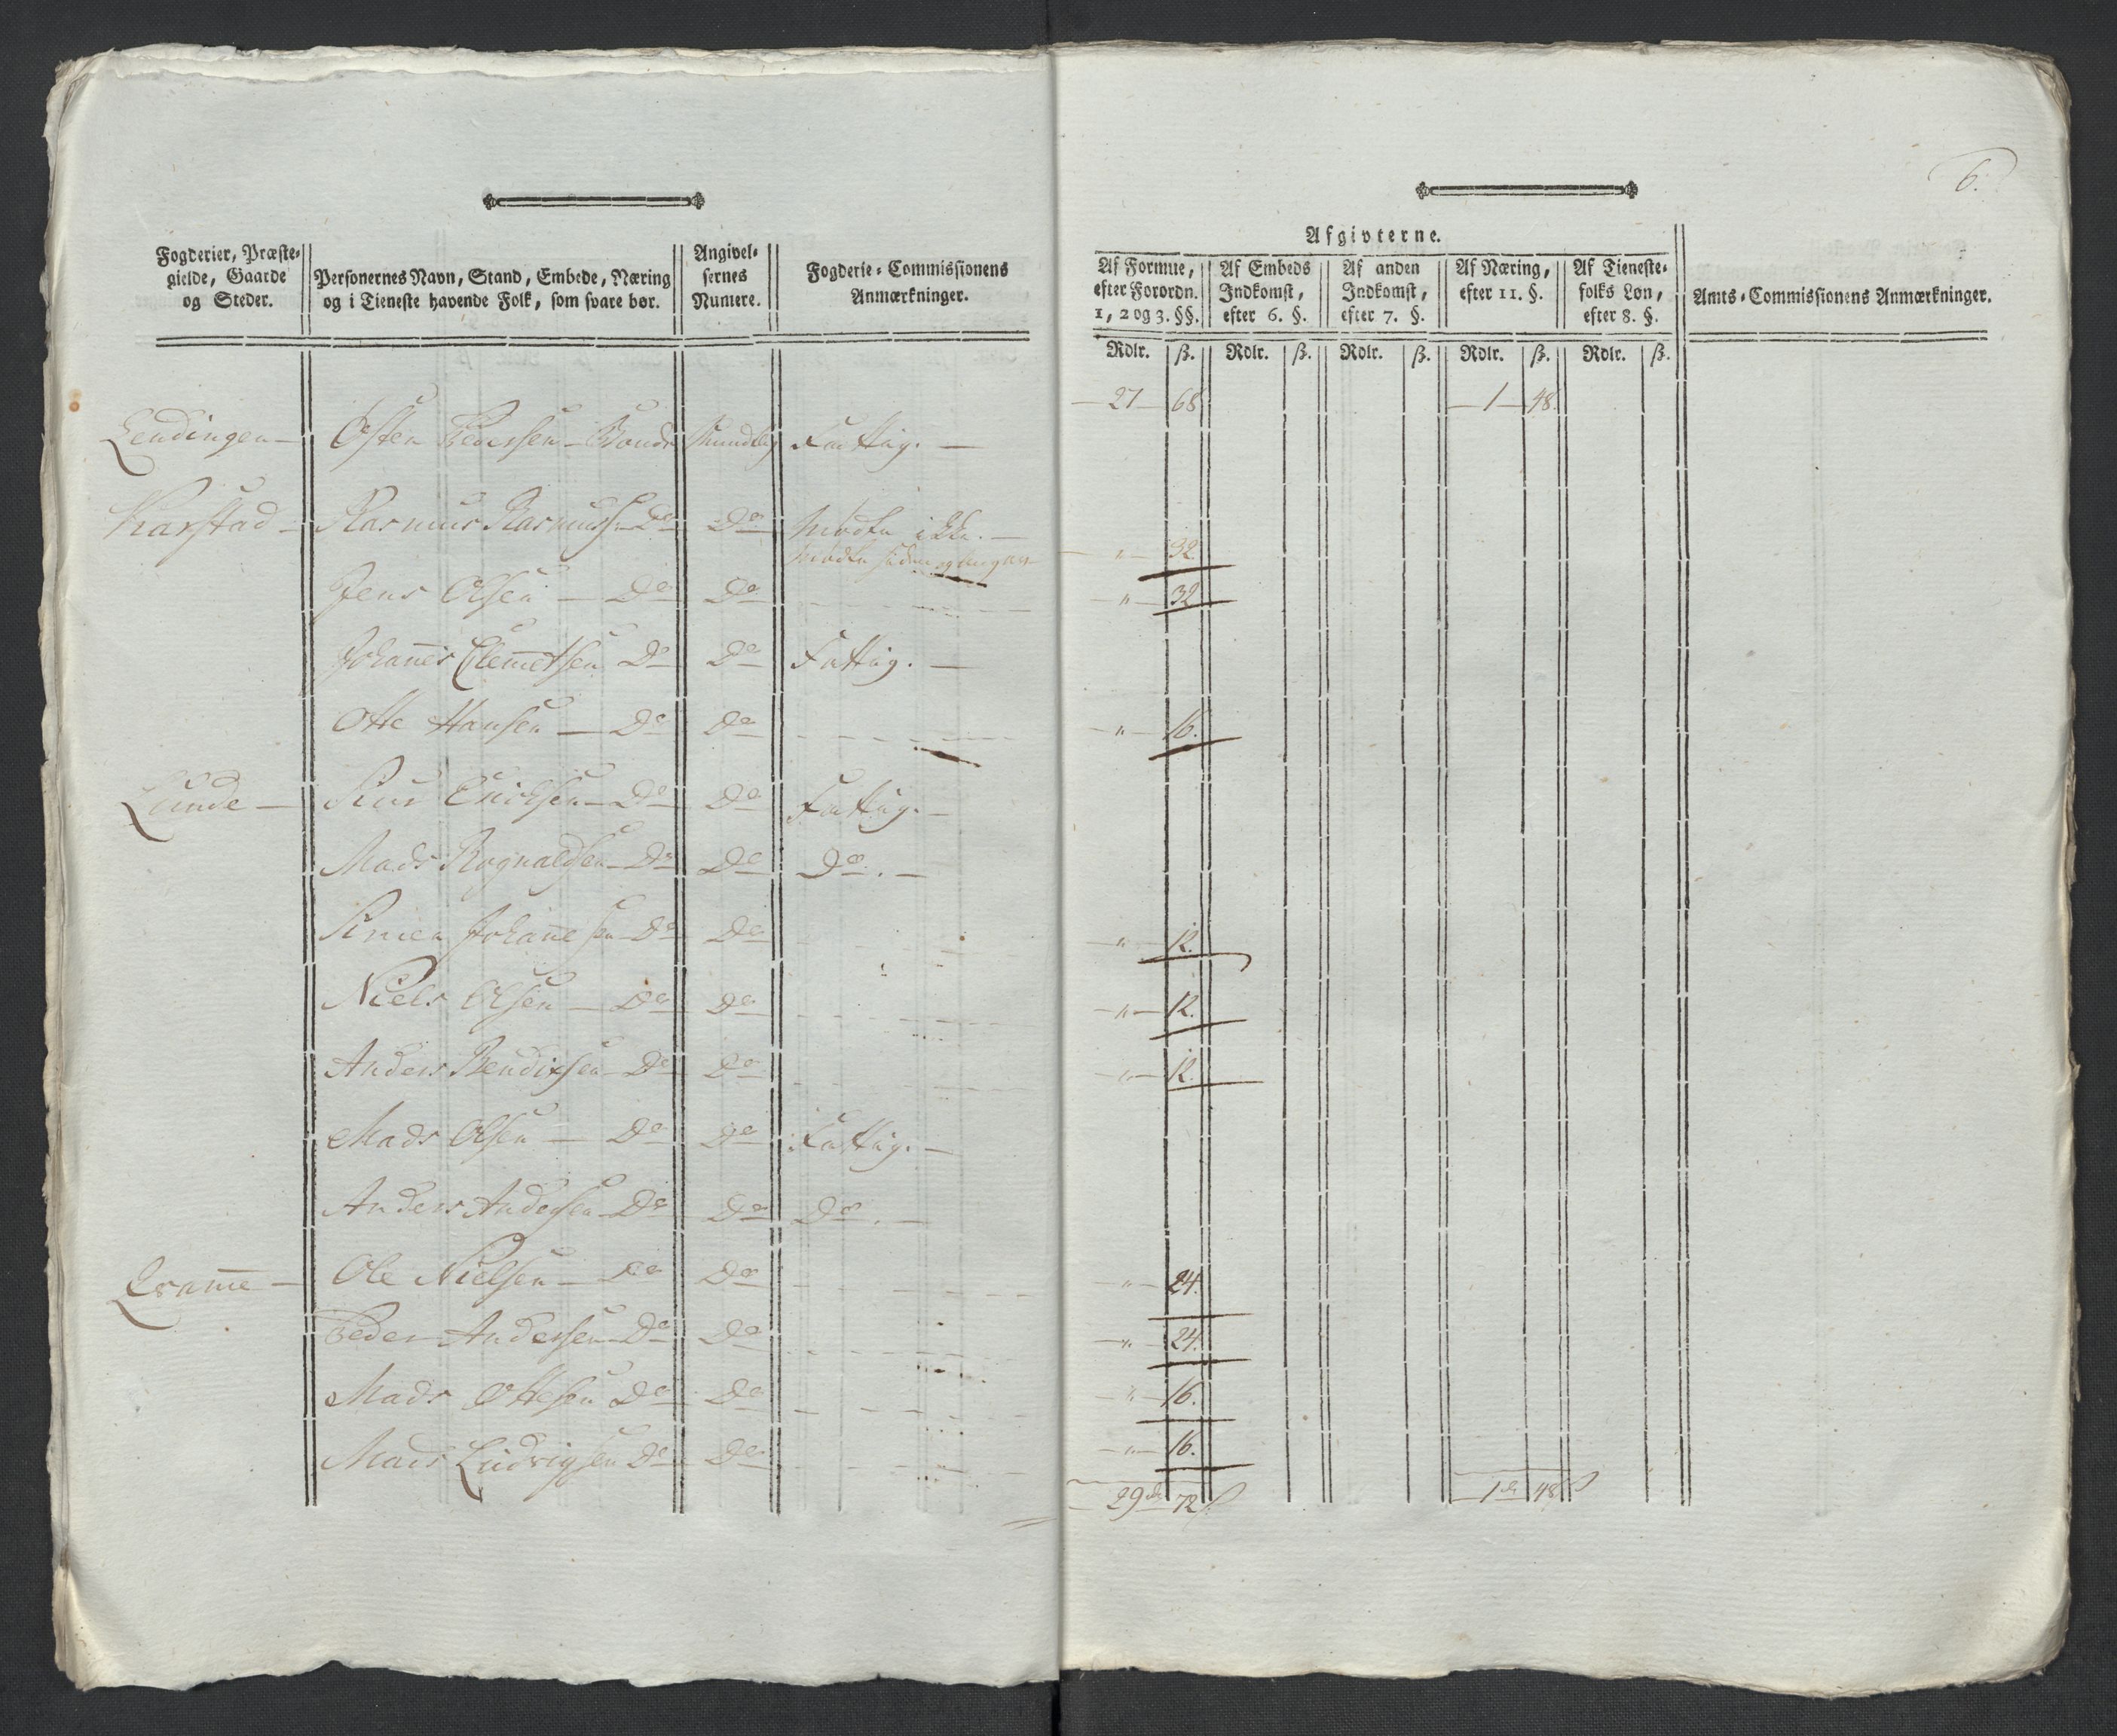 6.
Fogderier, Præste-
gielde, Gaarde
og Steder.
Personernes Navn, Stand, Embede, Næring
og i Tieneste havende Folk, som svare bør.
Angivel-
sernes
Numere.
Fogderie-Commissionens
Anmærkninger.
Afgivterne.
Af Formue,
efter Forordn.
1, 2 og 3. §§.
Af Embeds
Indkomst,
efter 6. §.
Af anden
Indkomst,
efter 7. §.
Af Næring,
efter 11. §.
Af Tieneste-
folks Løn,
efter 8. §.
Amts-Commissionens Anmærkninger.
Rdlr. ß. Rdlr. ß. Rdlr. ß. Rdlr. ß. Rdlr. ß.
— 27 — 68 — 1 — 48.
Lendingen — Østen Pedersen — Bonde Mundtlig Fattig. —
Karstad — Rasmus Rasmussen Do Do Mødte ikke. —
Mødte siden — " — 32
Jens Olsen — Do Do — " — 32
Johannes Clemetsen Do Do Fattig. —
Otte Hansen — Do Do — " — 16.
Lunde — Siur Erichsen — Do Do Fattig. —
Mads Rognaldsen — Do Do Do. —
Simen Johannesen — Do Do — " — 12.
Niels Olsen — Do Do — " — 12.
Anders Bendixsen — Do Do — " — 12.
Mads Olsen — Do Do Fattig. —
Anders Andersen — Do Do Do. —
Qvamme — Ole Nielsen — Do Do — " — 24.
Peder Andersen — Do Do — " — 24.
Mads Ottesen Do Do — " — 16.
Mads Ludvigsen Do Do — " — 16.
29 72 ß 1 48 ß